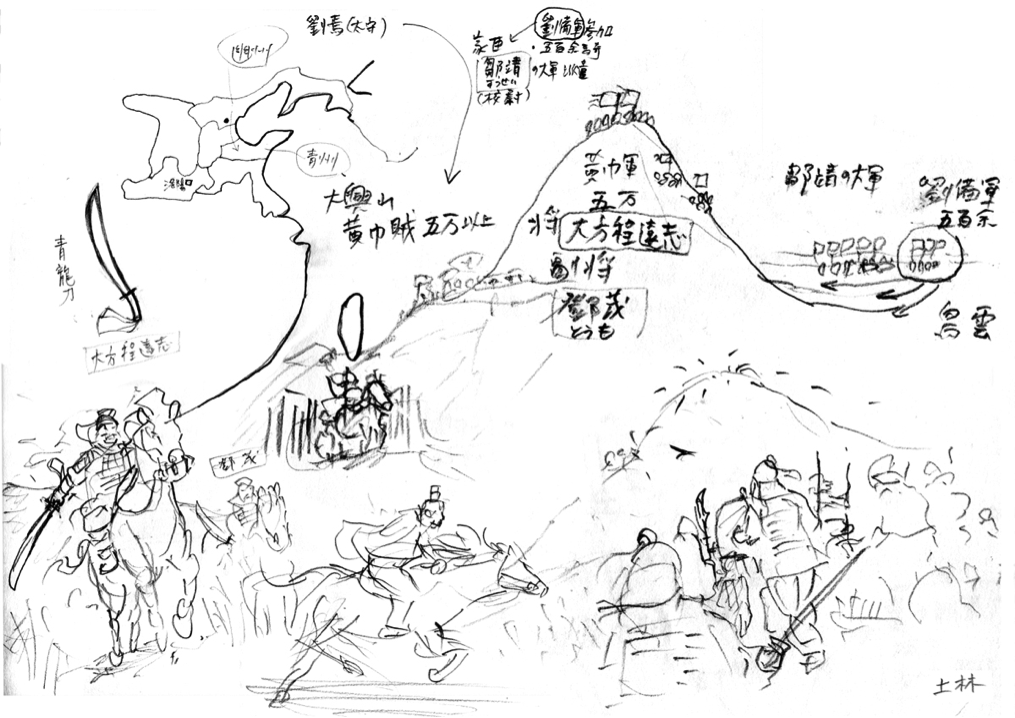 劉焉(太守)
劉備軍参加
・五百余騎
の大軍
家臣
鄒靖
すうせい
(校尉)
幽州
青州
洛陽
大興山
黄巾賊 五万以上
黄巾軍
五万
将 大方程遠志
副将
鄧茂
とうも
鄒靖の大軍
劉備軍
五百余
青龍刀
大方程遠志
鄧茂
土林